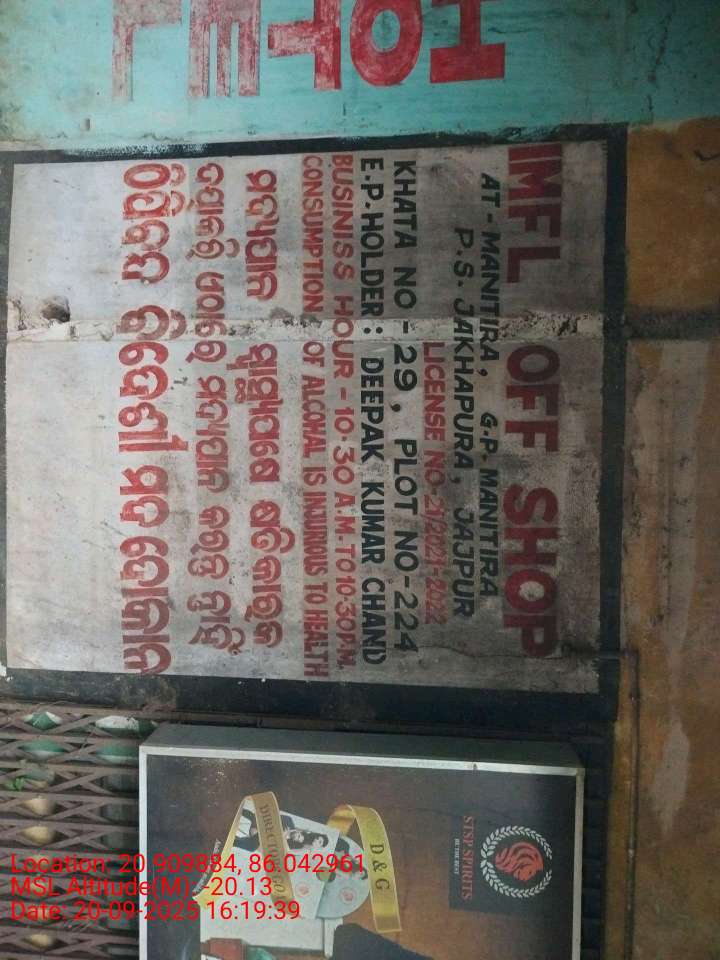 IMFL OFF SHOP
AT - MANITIRA, G.P- MANITIRA
P.S. JAKHAPURA, JAJPUR
LICENSE NO-21/2021-2022
KHATA NO - 29, PLOT NO-224
E.P. HOLDER : DEEPAK KUMAR CHAND
BUSINISS HOUR - 10.30 A.M. TO 10.30 P.M.
CONSUMPTION OF ALCOHAL IS INJURIOUS TO HEALTH
ମଦ୍ୟପାନ
ମଦ୍ୟପାନ କରନ୍ତୁ ନାହିଁ
ବିଦେଶୀ ମଦ ଦୋକାନ
STSP SPIRITS
BE THE BEST
D & G
Location: 20.909884, 86.042961
MSL Altitude(M): -20.13
Date: 20-09-2025 16:19:39